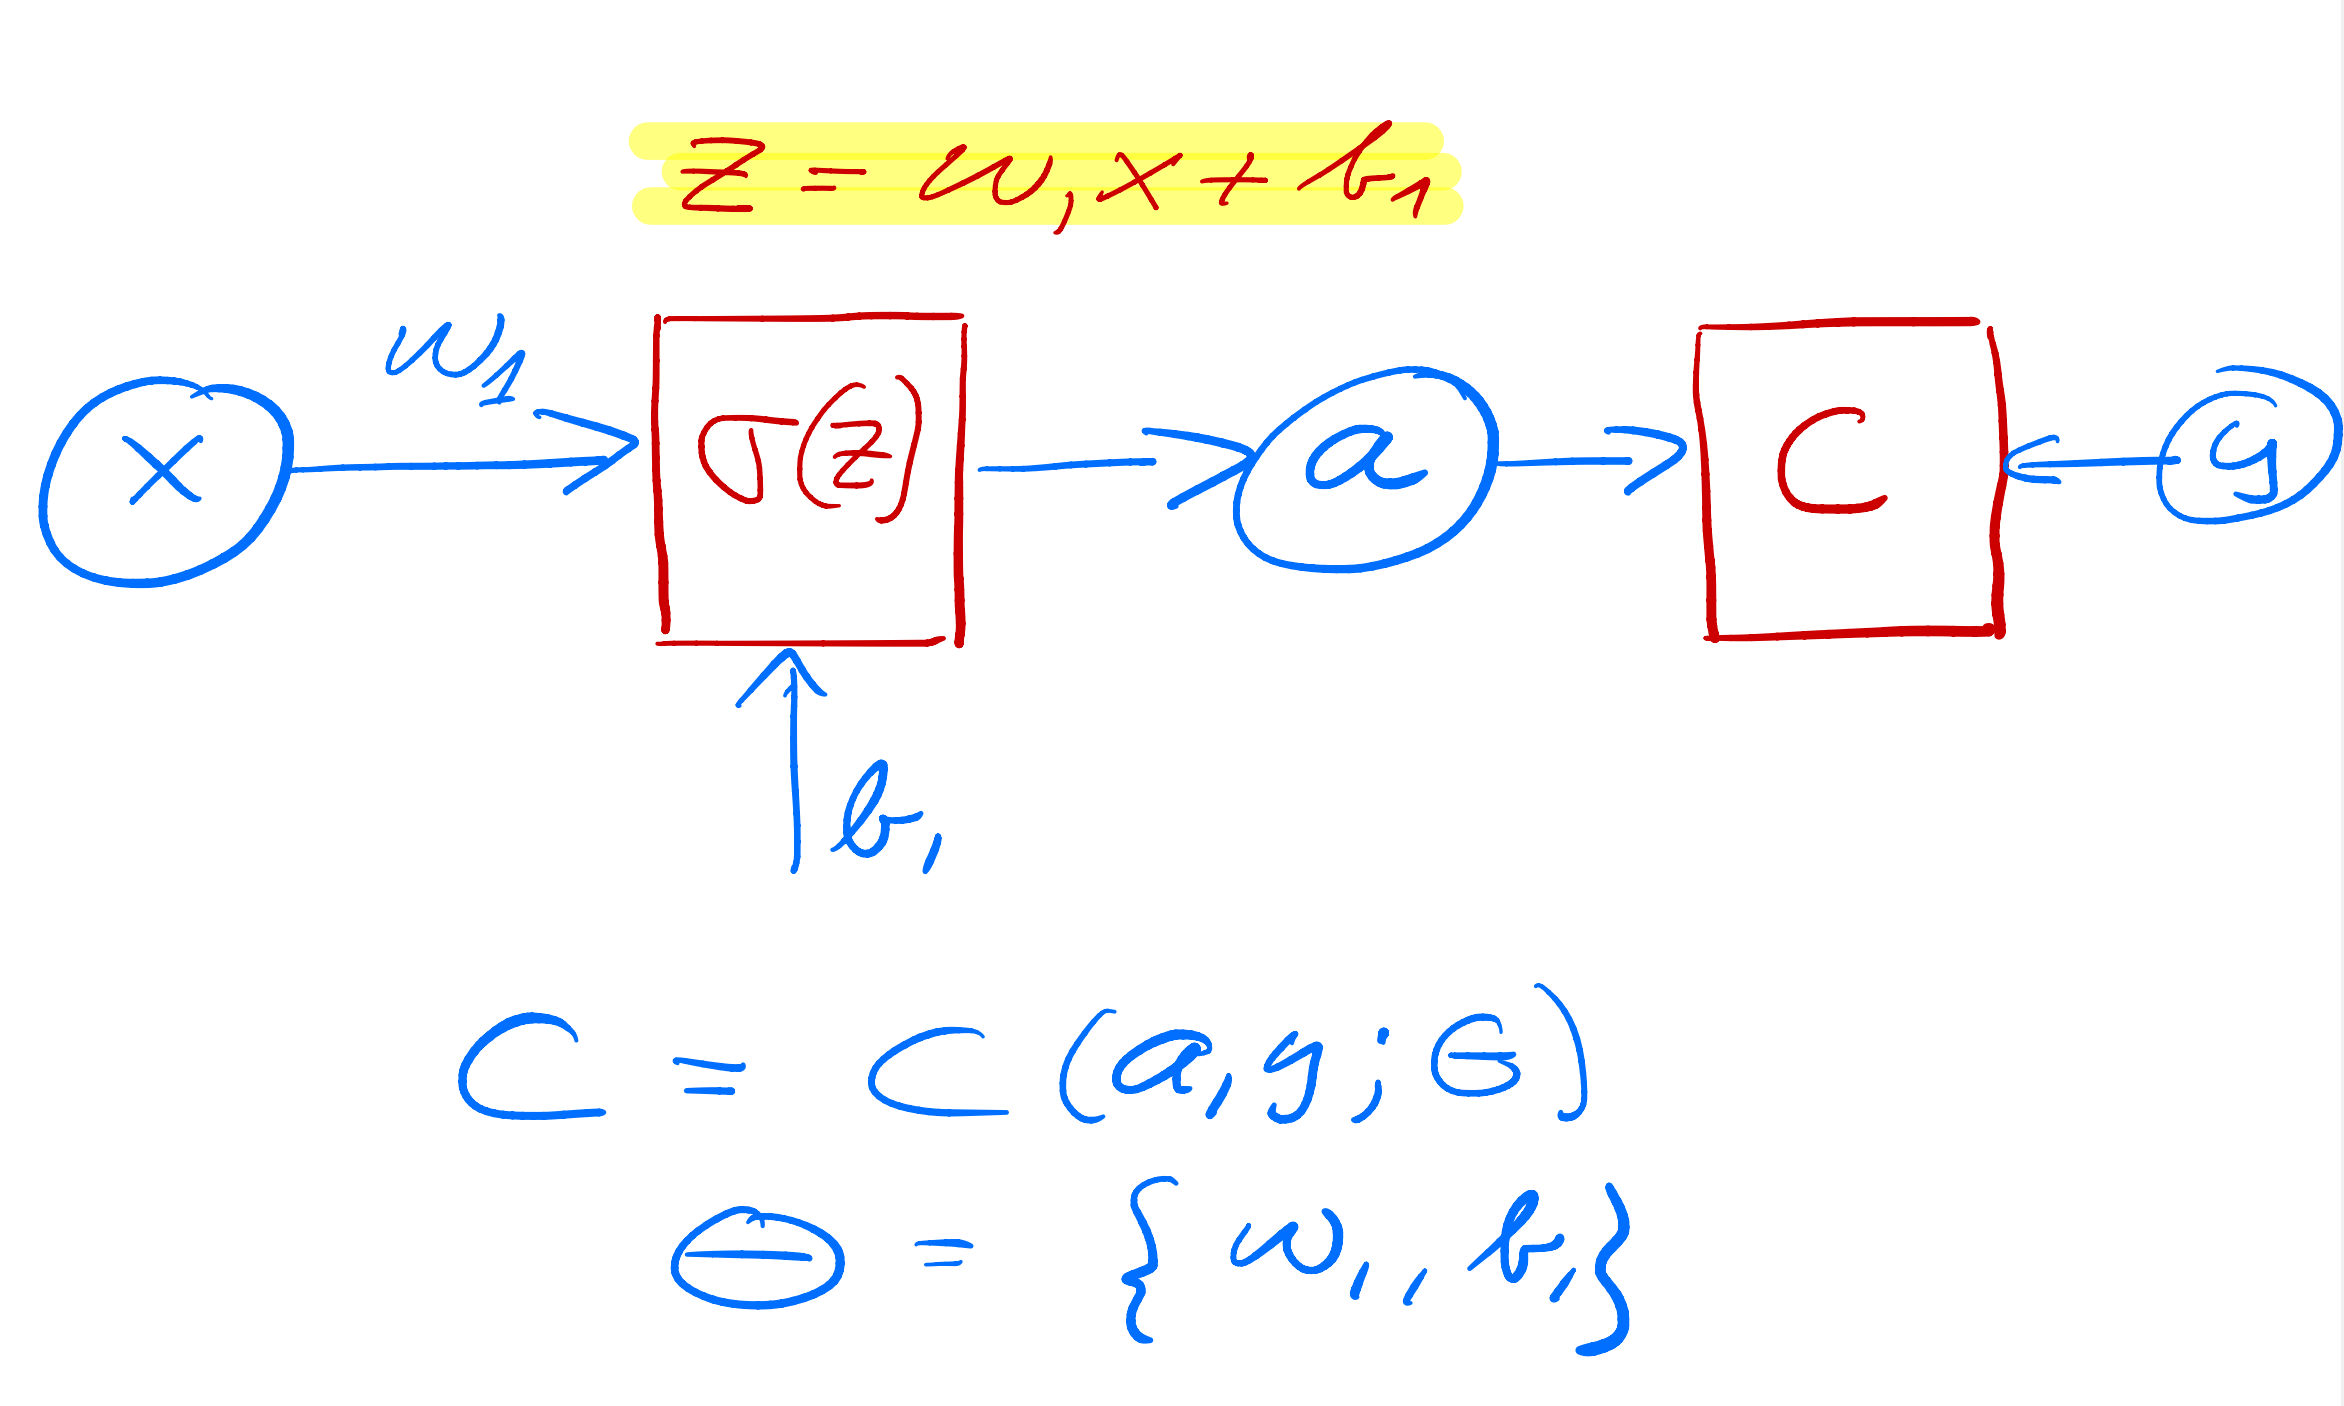 z = w₁x + b₁
w₁
x σ(z) a C y
b₁
C = C(a, y; Θ)
Θ = { w₁, b₁ }